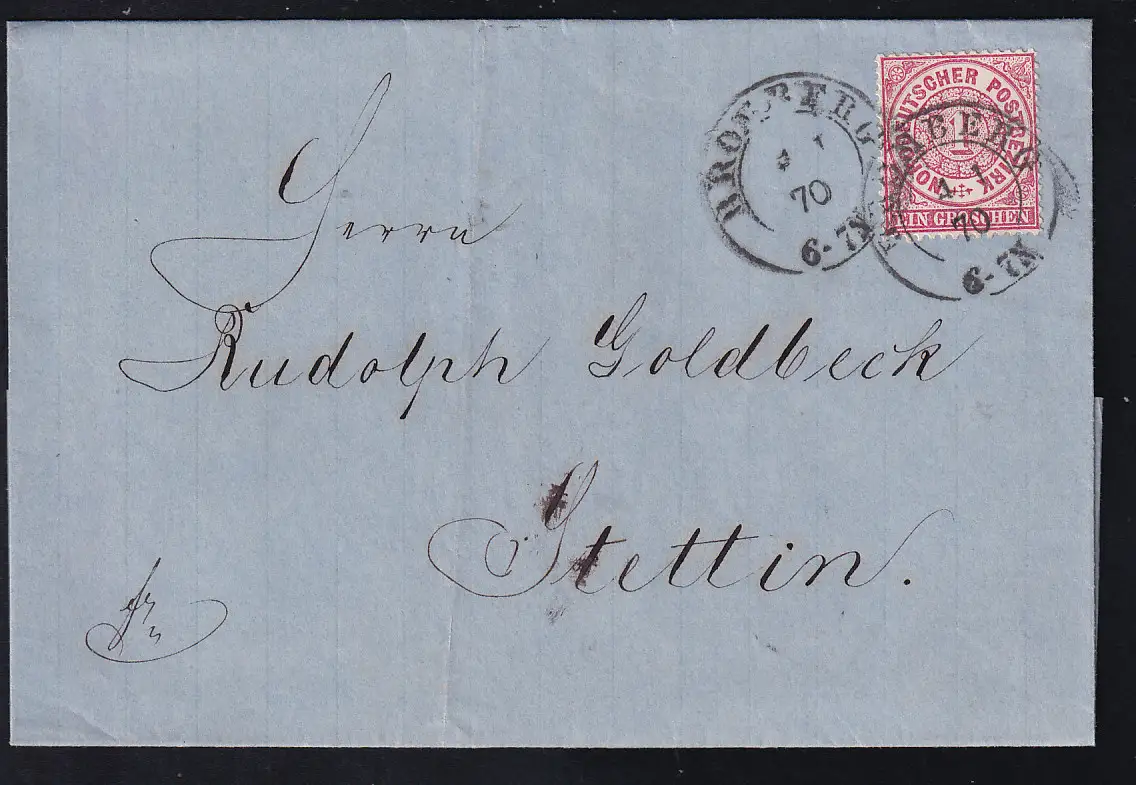 Herrn
Rudolph Goldbeck
Stettin.
fr
BROMBERG
4 1
70
6-7N
BROMBERG
4 1
70
6-7N
NORDDEUTSCHER POSTBEZIRK
1
EIN GROSCHEN